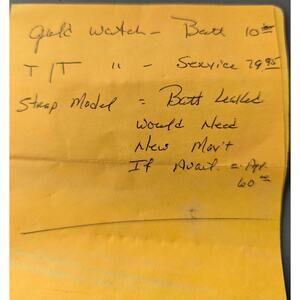 Gold Watch - Batt 10.00
T/T " - Service 79.95
Strap Model = Batt Leaked
Would Need
New Mov't
If Avail. - App.
60.00